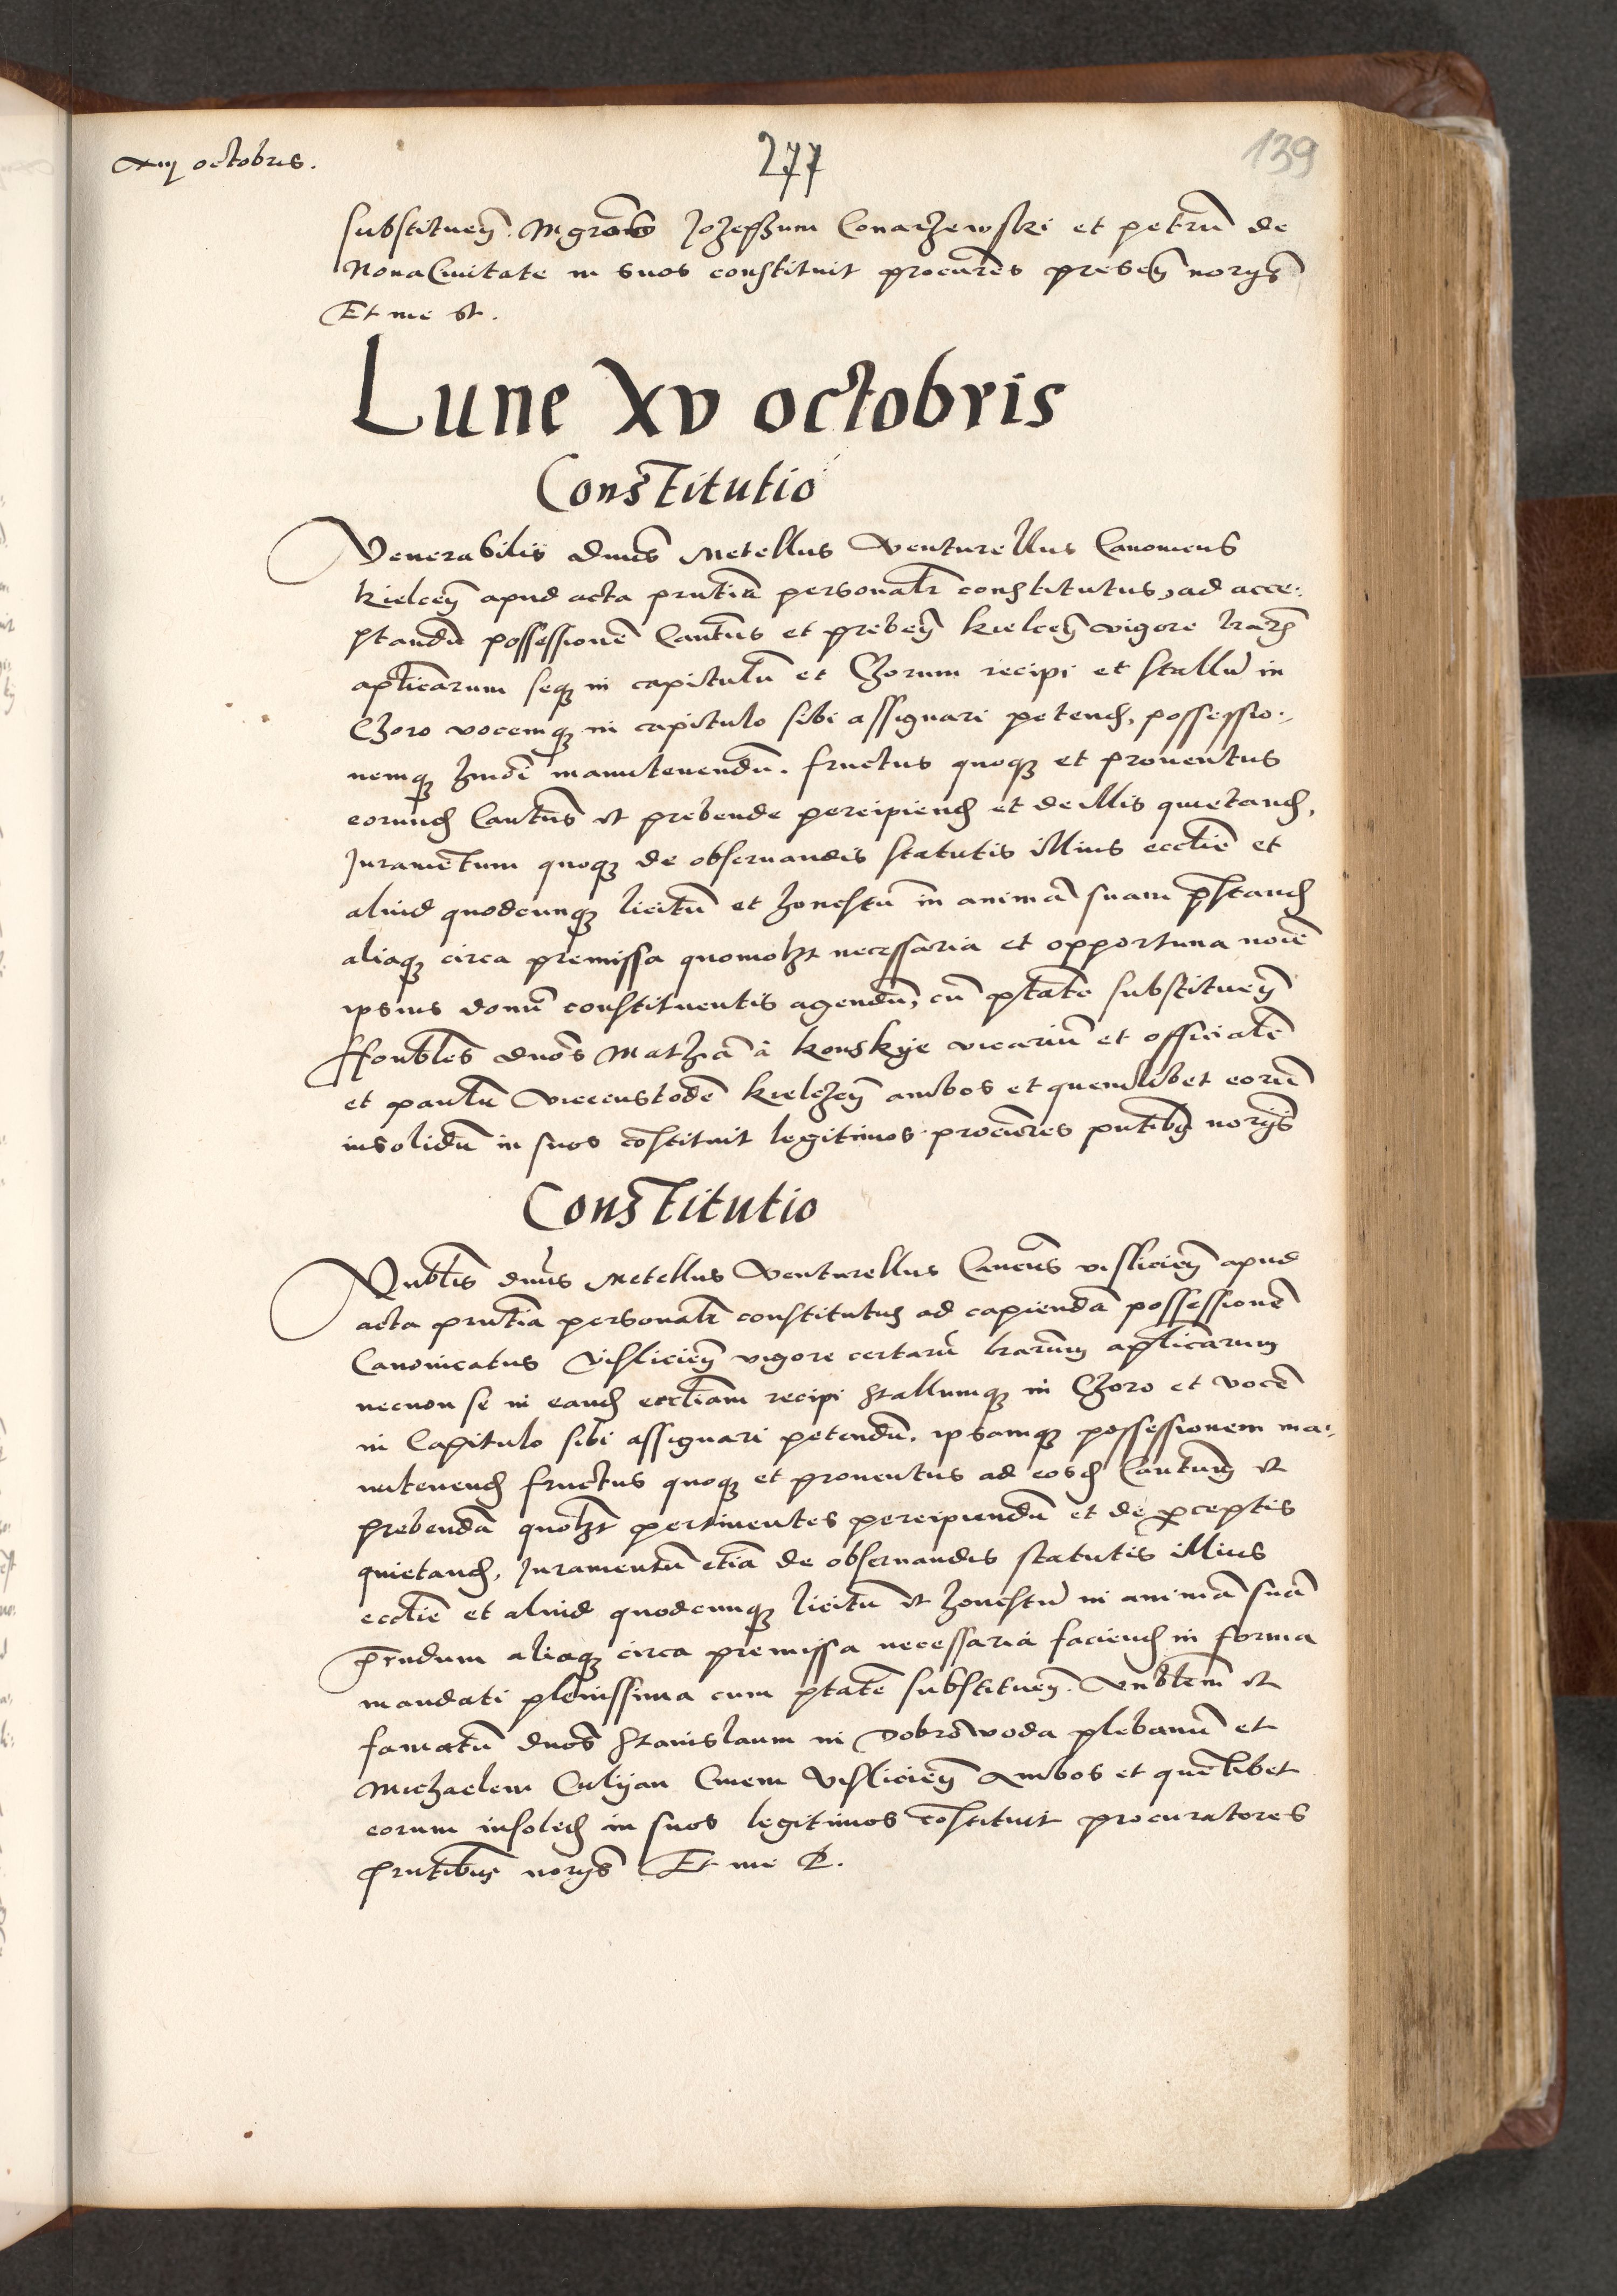 xiij octobris.
277
139
substitueñ. Mgros Jozephum Conarzewski et petrū de
Nona Ciuitate in suos constituit procures preseñ norijs
Et me st.
Lune Xv octobris
Constitutio
Venerabilis dnus Metellus Venturellus Canonicus
kielceñ apud acta pñtia personalr constitutus, ad acce:
ptandū possessionē Cantus et prebeñ kielceñ vigore lrarum
aplicarum seq in capitulū et Chorum recipi et stallū in
Choro vocemq in capitulo sibi assignari petend, possessio:
nemq hmōi manutenendū. fructus quoq et prouentus
eorund Cantus et prebende percipiend et de illis quietand,
Juramētum quoq de obseruandis statutis illius ecclie et
aliud quodcunq licitū et honestū in animā suam pstand
aliaq circa premissa quomolzt necessaria et opportuna noīe
ipsius domī constituentis agendū, cū ptate substitueñ
Honbles dnos Mathiā à konskye vicariū et officialē
et paulū vicecustodē kielczeñ ambos et quemlibet eorū
insolidū in suos cōstituit legitimos procures pntibq norijs
Constitutio
Vnblis dnus Metellus Venturellus Cancus vislicieñ apud
acta pñtia personalr constitutus ad capiendā possessionē
Canonicatus Vislicieñ vigore certarū lrarum aplicarum
necnon se in eand eccliam recipi stallumq in Choro et vocē
in Capitulo sibi assignari petendū, ipsamq possessionem ma:
nutenend fructus quoq et prouentus ad eosd Cantum et
prebendā quolzt pertinentes percipiendū et de perceptis
quietand, Juramentū etiā de obseruandis statutis illius
ecclie et aliud quodcunq licitū et honestū in animā suā
prndum aliaq circa premissa necessaria faciend in forma
mandati plenissima cum ptate substitueñ. Vnblem et
famatū dnos Stanislaum in Dobrowoda plebanū et
Michaelem Culijan Ciuem Vislicieñ Ambos et quēlibet
eorum insoled in suos legitimos cōstituit procuratores
pntibus norijs Et me &.